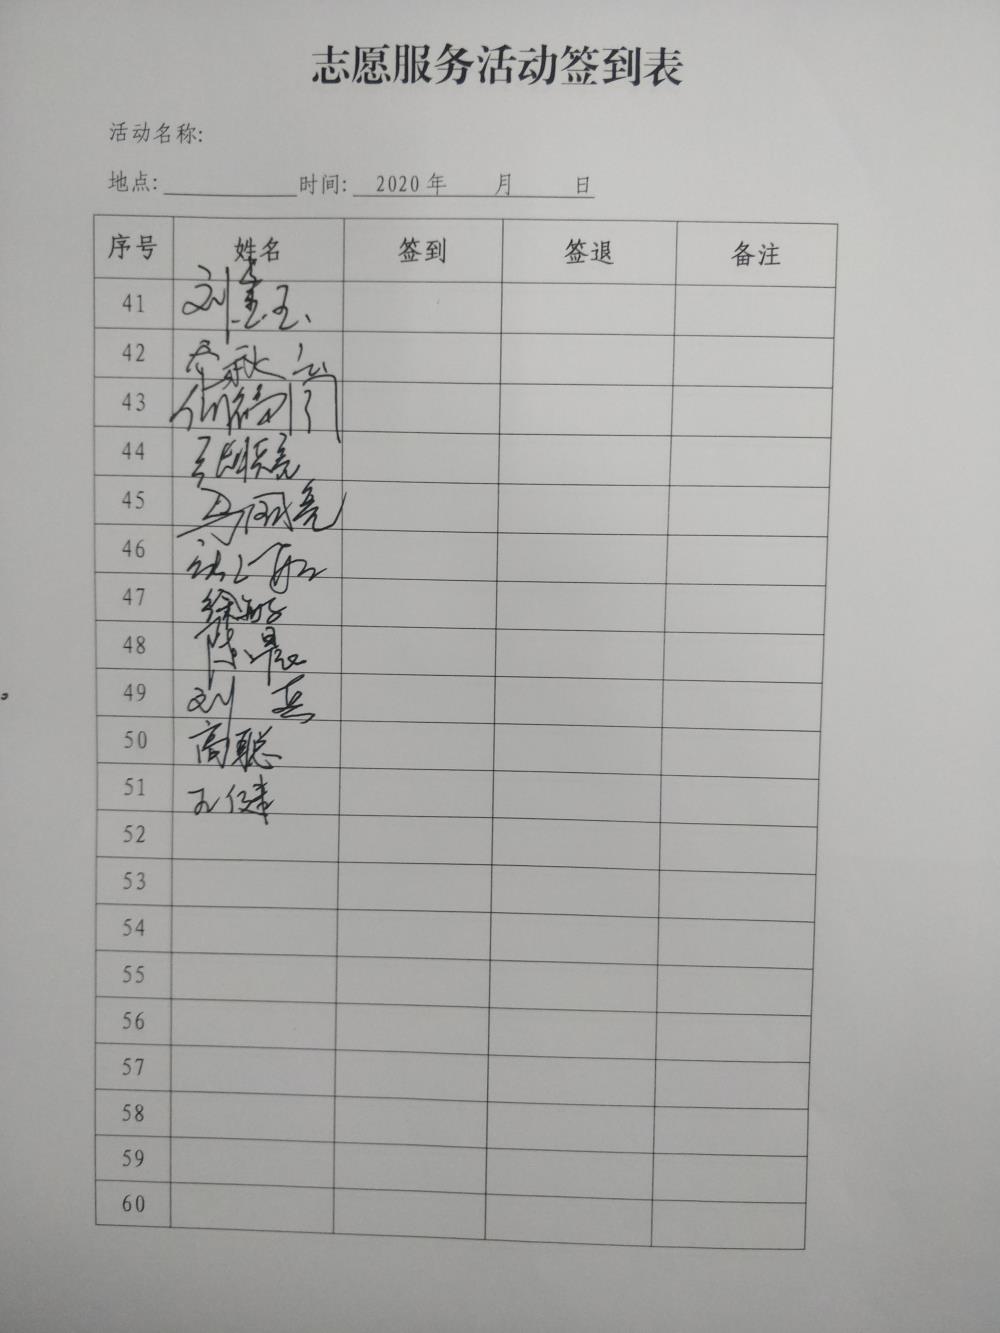 志愿服务活动签到表
活动名称:
地点: 时间: 2020年 月 日
序号 姓名 签到 签退 备注
41 刘
42 秋
43
44
45 马 亮
46
47 徐
48 陈晨
49 刘兵
50 高聪
51 王健
52
53
54
55
56
57
58
59
60